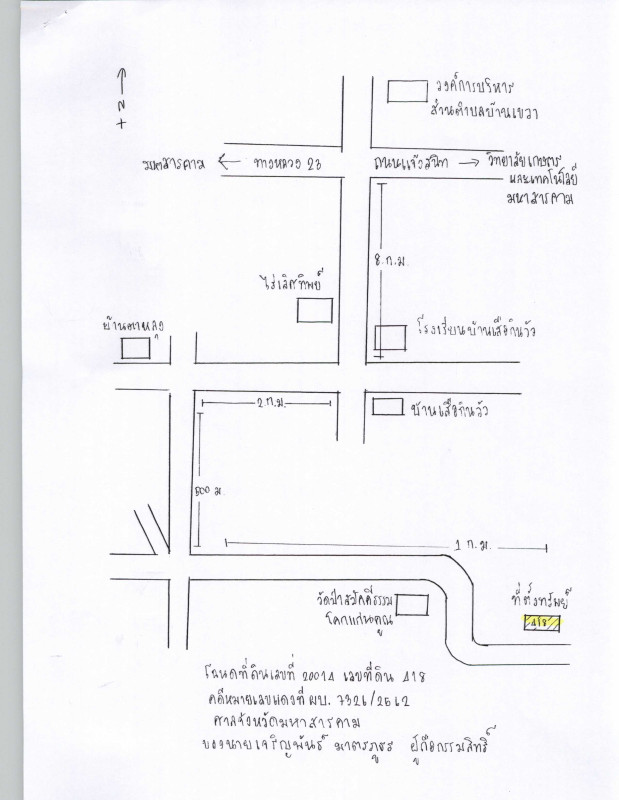 N
องค์การบริหาร
ส่วนตำบลบ้านเขวา
มหาสารคาม ← ทางหลวง 23 ถนนแจ้งสนิท → วิทยาลัยเกษตร
และเทคโนโลยี
มหาสารคาม
8 ก.ม.
ไร่เลิศทิพย์
บ้านตาหลุง
โรงเรียนบ้านเสือกินวัว
2 ก.ม.
บ้านเสือกินวัว
500 ม.
1 ก.ม.
วัดป่าสามัคคีธรรม
โคกแก่นคูณ
ที่ตั้งทรัพย์
418
โฉนดที่ดินเลขที่ 20014 เลขที่ดิน 418
คดีหมายเลขแดงที่ ผบ. 7326/2562
ศาลจังหวัดมหาสารคาม
ของนายเจริญพันธ์ มาตรภูธร ผู้ถือกรรมสิทธิ์